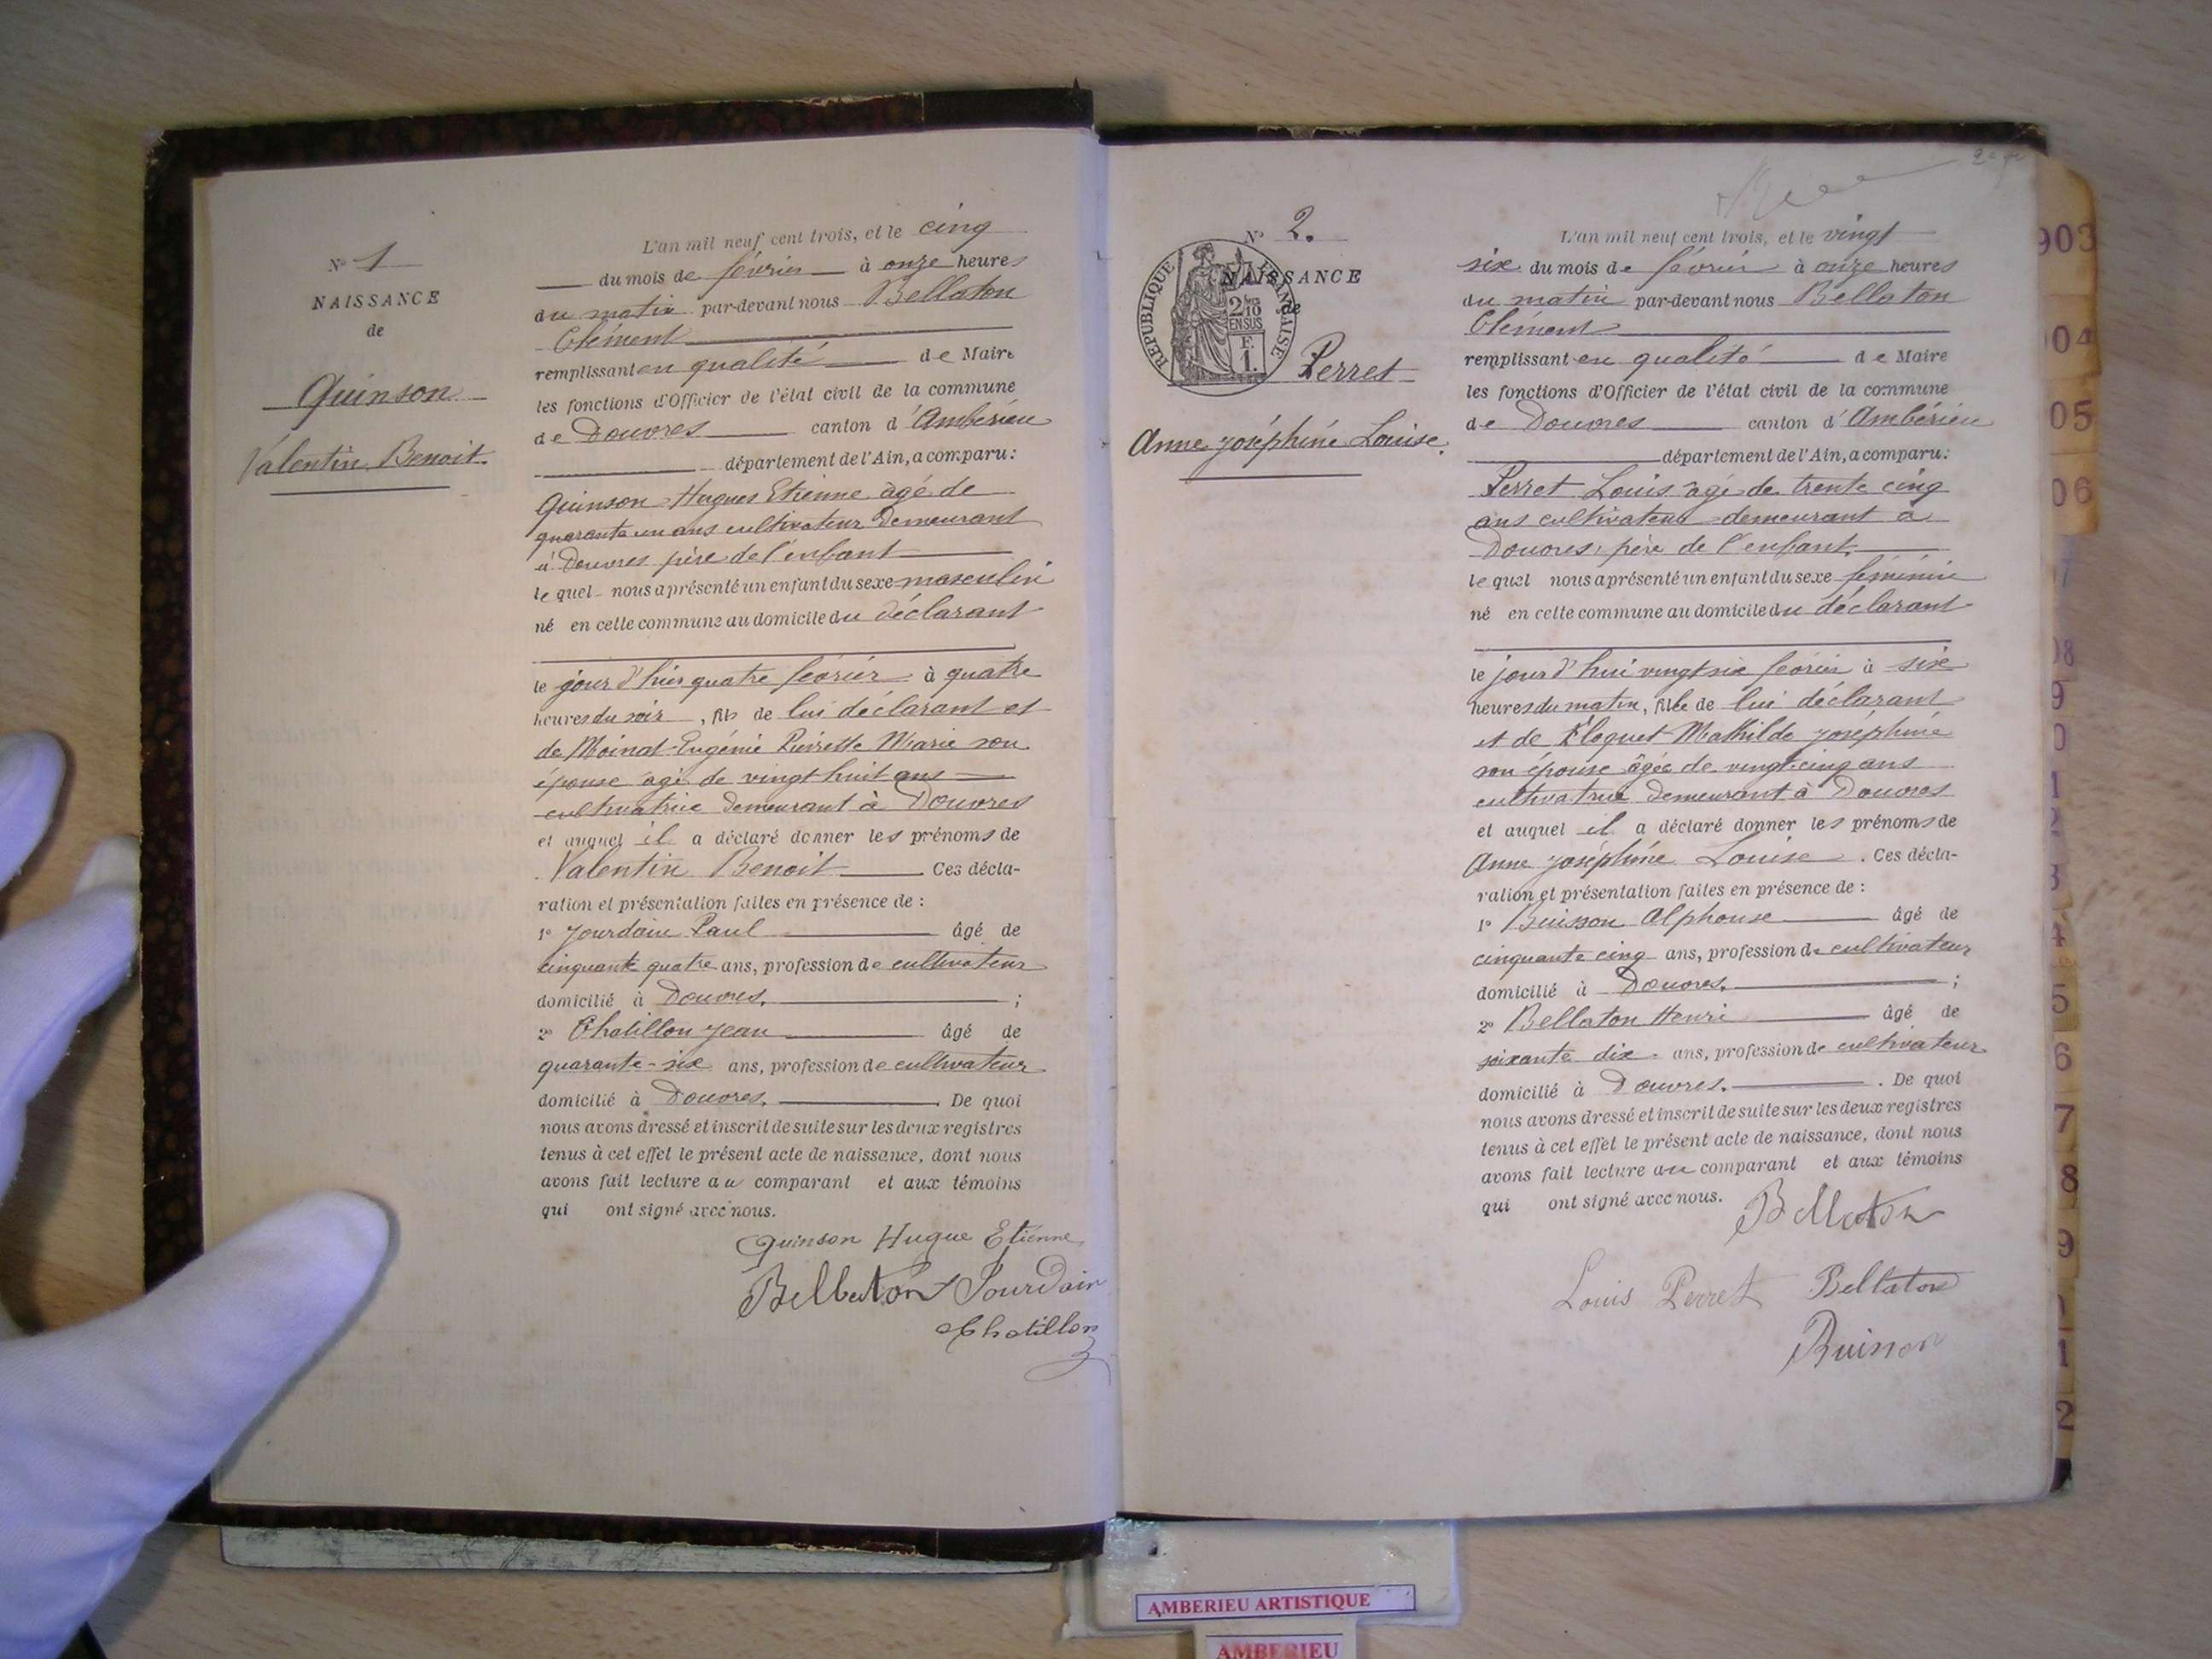 N° 1
NAISSANCE
de
Quinson
Valentin Benoit.
L'an mil neuf cent trois, et le cinq
du mois de février à onze heures
du matin par-devant nous Bellaton
Clément
remplissant en qualité de Maire
les fonctions d'Officier de l'état civil de la commune
de Douvres canton d'Ambérieu
département de l'Ain, a comparu:
Quinson Hugues Etienne âgé de
quarante un ans cultivateur demeurant
à Douvres père de l'enfant
le quel nous a présenté un enfant du sexe masculin
né en cette commune au domicile du déclarant
le jour d'hier quatre février à quatre
heures du soir, fils de lui déclarant et
de Moinat Eugénie Pierrette Marie son
épouse agé de vingt huit ans
cultivatrice demeurant à Douvres
et auquel il a déclaré donner les prénoms de
Valentin Benoit Ces décla-
ration et présentation faites en présence de :
1° Jourdain Paul âgé de
cinquante quatre ans, profession de cultivateur
domicilié à Douvres. ;
2° Chatillon Jean âgé de
quarante-six ans, profession de cultivateur
domicilié à Douvres. De quoi
nous avons dressé et inscrit de suite sur les deux registres
tenus à cet effet le présent acte de naissance, dont nous
avons fait lecture au comparant et aux témoins
qui ont signé avec nous.
Quinson Hugue Etienne
Bellaton Jourdain
Chatillon
N° 2.
NAISSANCE
de
REPUBLIQUE FRANÇAISE
2/10
EN SUS
F.
1.
Perret
Anne Joséphine Louise.
L'an mil neuf cent trois, et le vingt
six du mois de février à onze heures
du matin par-devant nous Bellaton
Clément
remplissant en qualité de Maire
les fonctions d'Officier de l'état civil de la commune
de Douvres canton d'Ambérieu
département de l'Ain, a comparu:
Perret Louis âgé de trente cinq
ans cultivateur demeurant à
Douvres, père de l'enfant.
le quel nous a présenté un enfant du sexe féminin
né en cette commune au domicile du déclarant
le jour d'hui vingt six février à six
heures du matin, fille de lui déclarant
et de Mathilde Joséphine
son épouse âgée de vingt cinq ans
cultivatrice demeurant à Douvres
et auquel il a déclaré donner les prénoms de
Anne Joséphine Louise. Ces décla-
ration et présentation faites en présence de :
1° Buisson Alphonse âgé de
cinquante cinq ans, profession de cultivateur
domicilié à Douvres. ;
2° Bellaton Henri âgé de
soixante dix ans, profession de cultivateur
domicilié à Douvres. De quoi
nous avons dressé et inscrit de suite sur les deux registres
tenus à cet effet le présent acte de naissance, dont nous
avons fait lecture au comparant et aux témoins
qui ont signé avec nous.
Bellaton
Louis Perret Bellaton
Buisson
903
04
05
06
7
08
9
0
1
2
3
4
5
6
7
8
9
1
2
AMBERIEU ARTISTIQUE
AMBERIEU